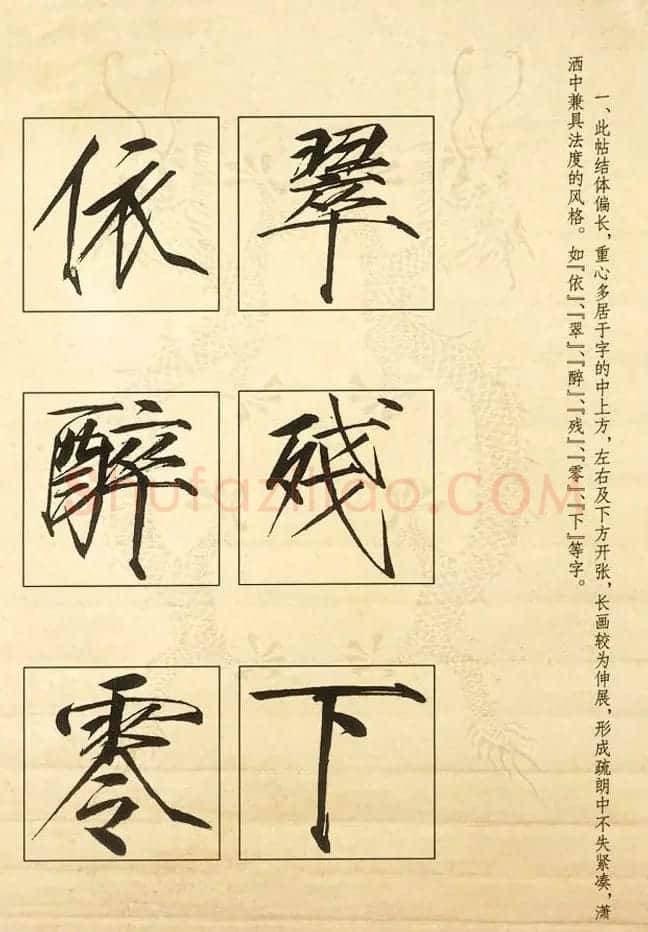 一、此帖结体偏长，重心多居于字的中上方，左右及下方开张，长画较为伸展，形成疏朗中不失紧凑，潇
洒中兼具法度的风格。如『依』、『翠』、『醉』、『残』、『零』、『下』等字。
翠
依
残
醉
下
零
shufaziliao.COM